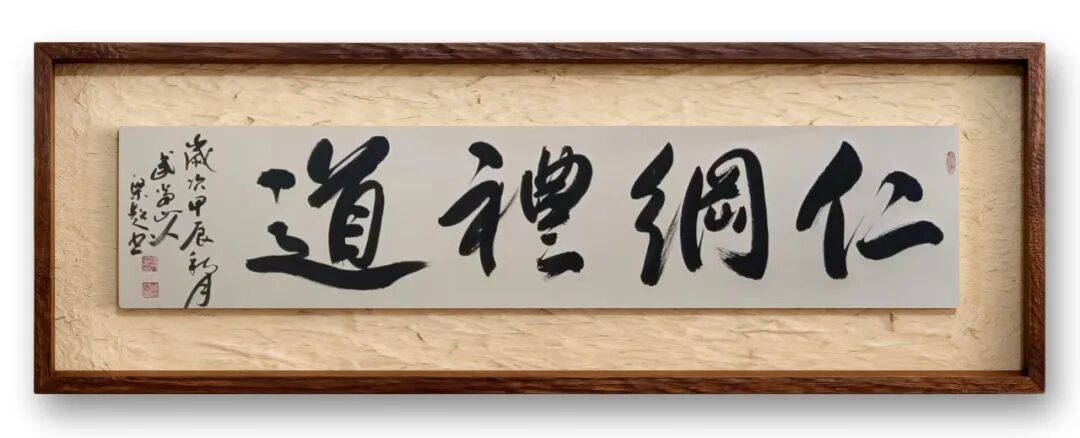 仁綱禮道
歲次甲辰秋月
武當山人
梁超書